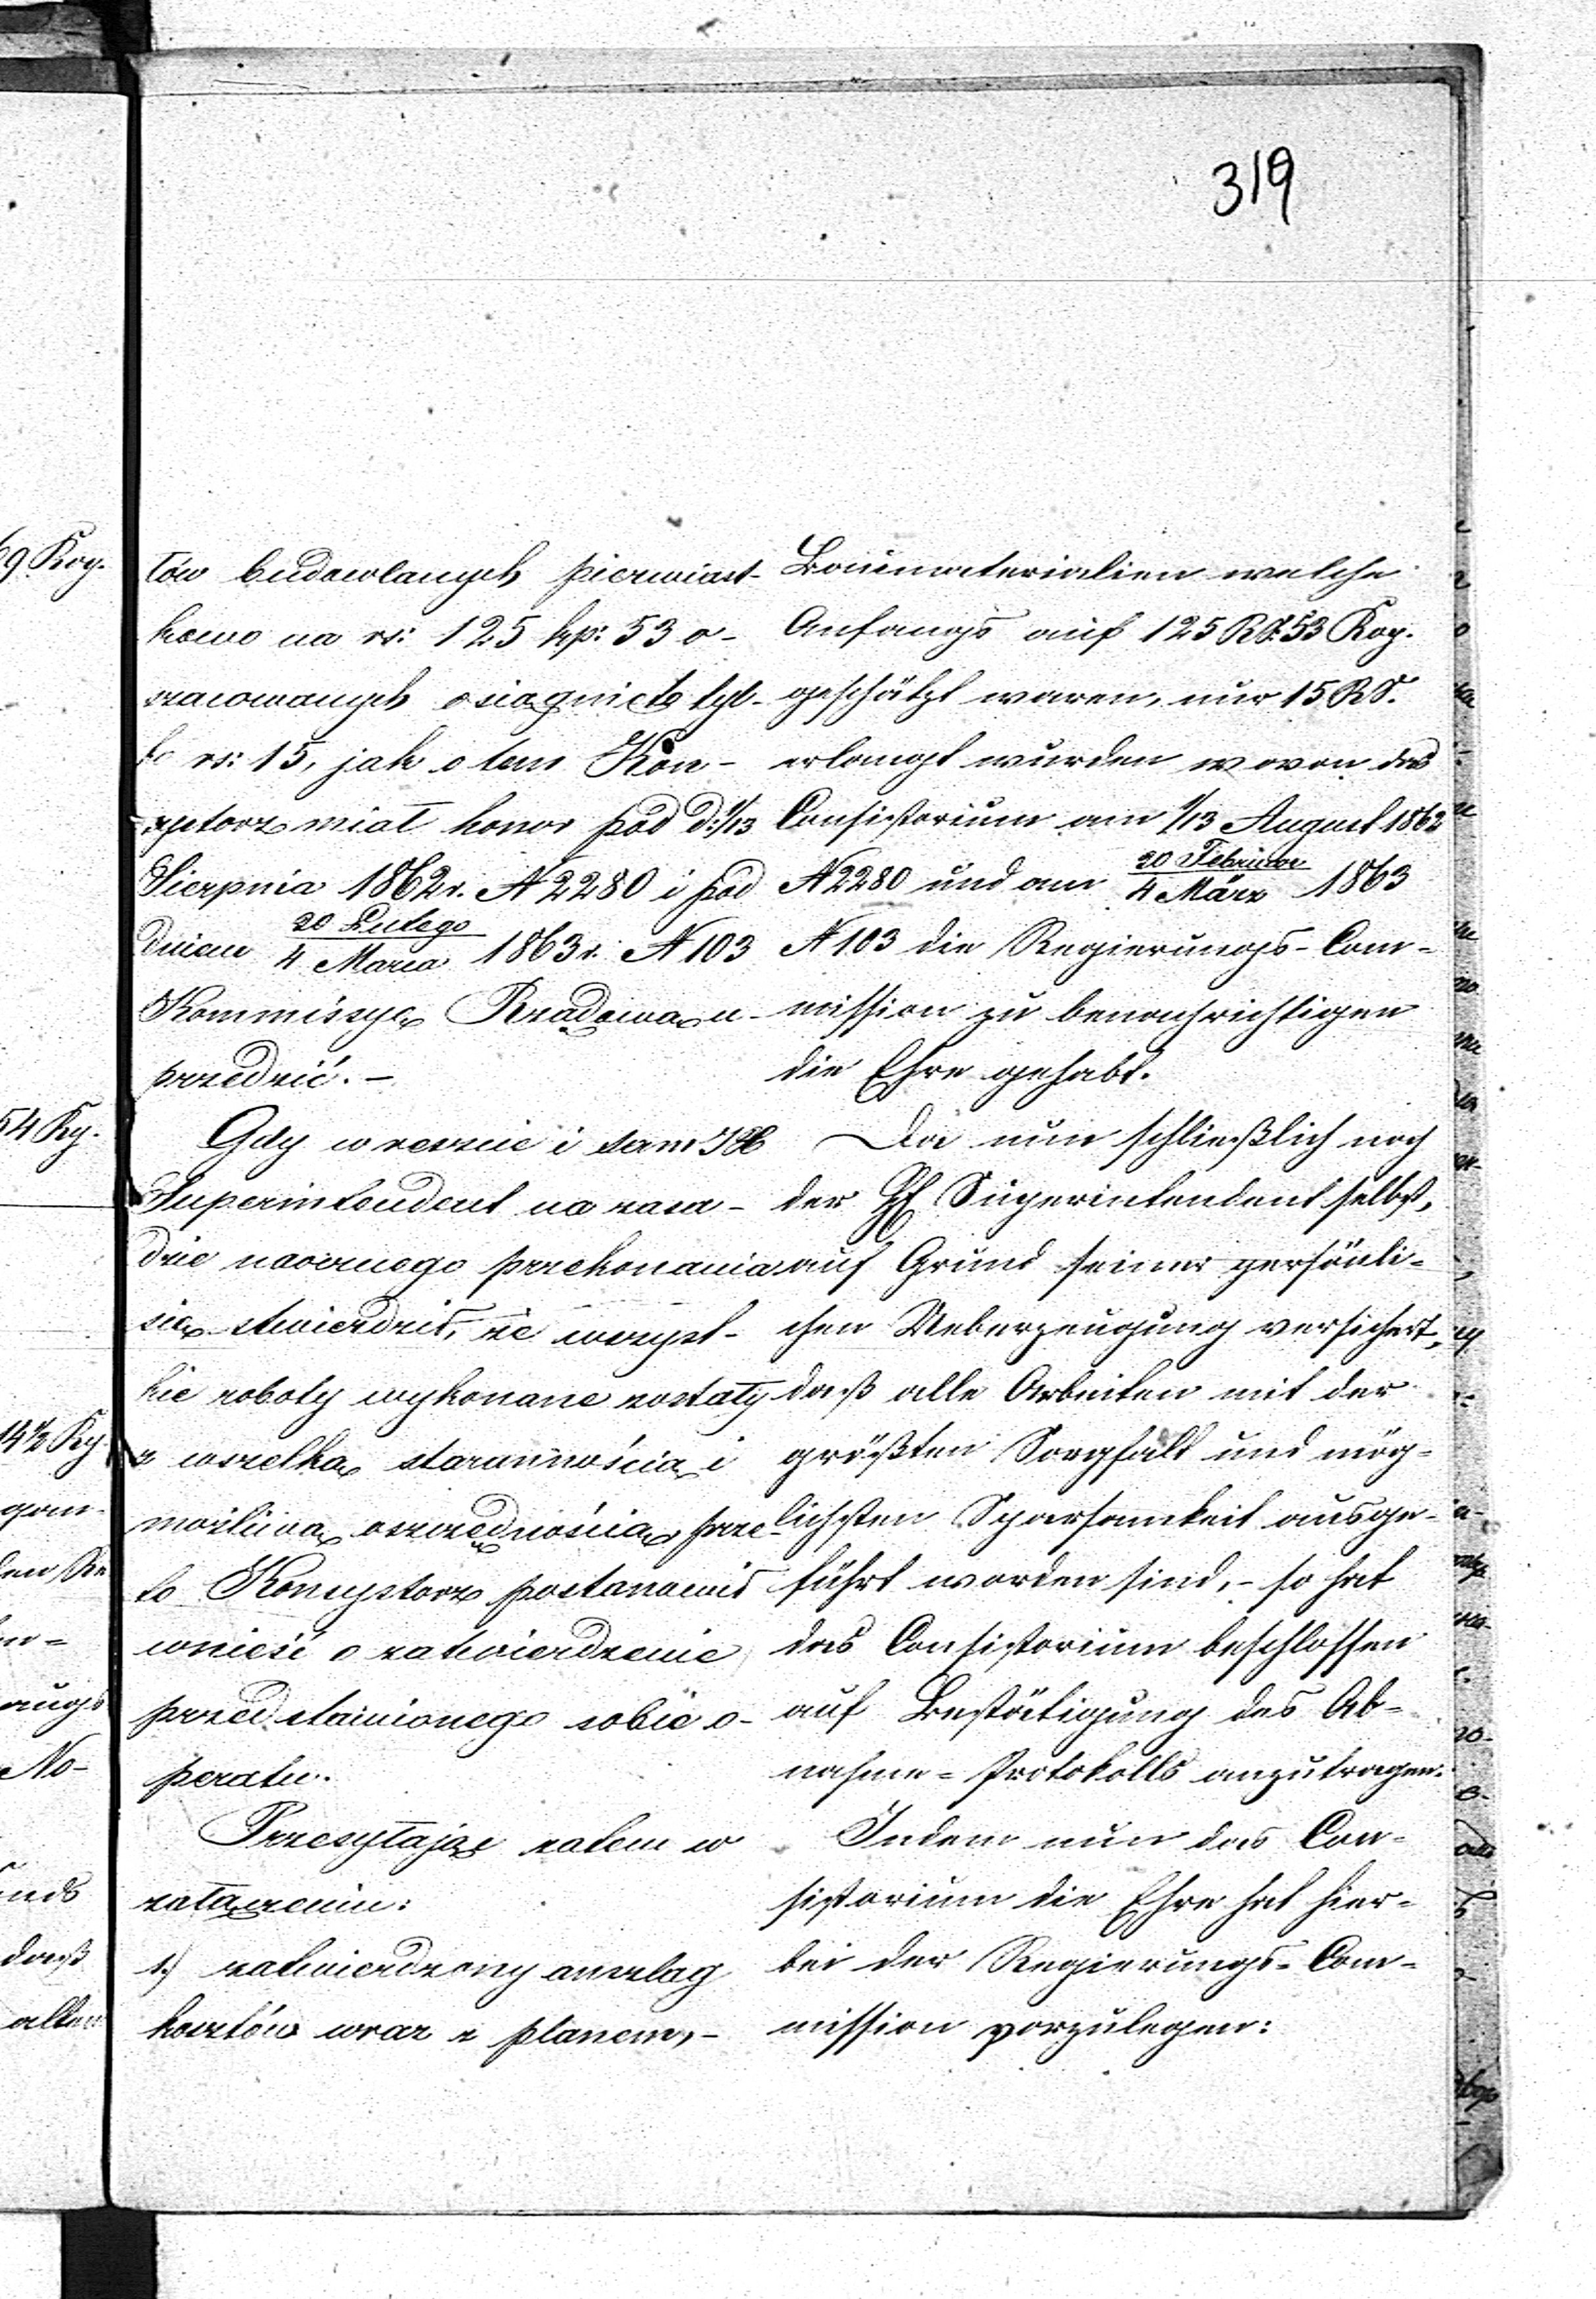 319
tów budowlanych pierwiast-
kowo na rs: 125 kp: 53 o-
szacowanych osiągnięto tyl-
ko rs: 15, jak o tem Kon-
systorz miał honor pod d: 1/13
Sierpnia 1862 r. N 2280 i pod
dniem 20 Lutego / 4 Marca 1863 r. N 103
Kommissyę Rządową u-
przedzić. –
Gdy wreszcie i sam JX
Superintendent na zasa-
dzie naocznego przekonania
się stwierdził, że wszyst-
kie roboty wykonane zostały
z wszelką starannością i
możliwą oszczędnością prze-
to Konsystorz postanowił
wnieść o zatwierdzenie
przedstawionego sobie o-
peratu.
Przesyłając zatem w
załączeniu:
1.) zatwierdzony anszlag
kosztów wraz z planem, –
Baumaterialien welche
Anfangs auf 125 RS. 53 Kop.
geschätzt waren, nur 15 RS.
erlangt wurden wovon das
Consistorium am 1/13 August 1862
N 2280 und am 20 Februar / 4 März 1863
N 103 die Regierungs-Com-
mission zu benachrichtigen
die Ehre gehabt.
Da nun schließlich noch
der H Superintendent selbst,
auf Grund seiner persönli-
chen Ueberzeugung versichert,
daß alle Arbeiten mit der
größten Sorgfalt und mög-
lichsten Sparsamkeit ausge-
führt worden sind, – so hat
das Consistorium beschlossen
auf Bestätigung des Ab-
nahme-Protokolls anzutragen.
Indem nun das Con-
sistorium die Ehre hat hier-
bei der Regierungs-Com-
mission vorzulegen: